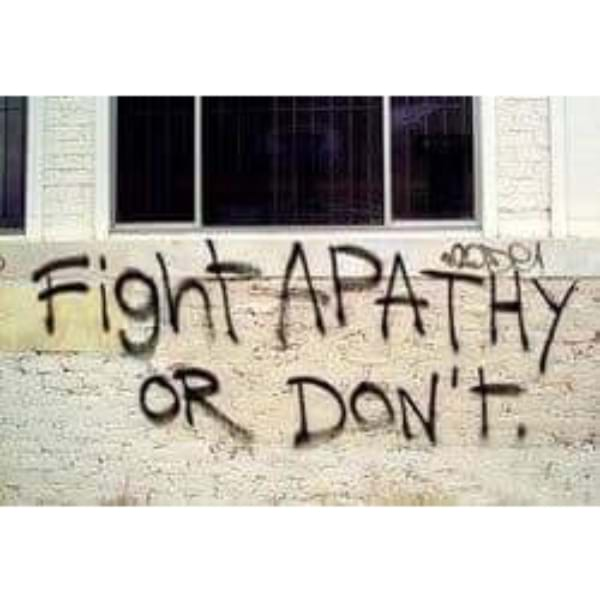 Fight APATHY
OR DON'T.